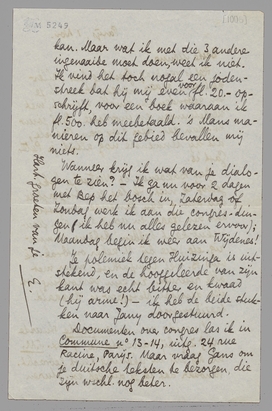 M 5249
(1935)
kan. Maar wat ik met die 3 andere
ingenaaide moet doen, weet ik niet.
Ik vind het toch nogal een joden-
streek dat hij mij even voor fl. 20.- op-
schrijft, voor een boek waaraan ik
fl. 500. heb meebetaald. 's Mans ma-
nieren op dit gebied bevallen mij
niets.
Wanneer krijg ik wat van je dialo-
gen te zien? – Ik ga nu voor 2 dagen
met Bep het bosch in, Zaterdag of
Zondag werk ik aan die congres-din-
gen (ik heb nu alles gelezen ervoor);
Maandag begin ik weer aan Wijdenes!
Je polemiek tegen Huizinga is uit-
stekend, en de hoofdleider van zijn
kant was echt bitter en kwaad
(hij arme!) – ik heb de beide stuk-
ken naar Jany doorgestuurd.
Documenten over congres las ik in
Commune nº 13-14, uitg. 24 rue
Racine, Parijs. Maar vraag Gans om
je duitsche teksten te bezorgen, die
zijn wschl. nog beter.
Hart. groeten van je
E.